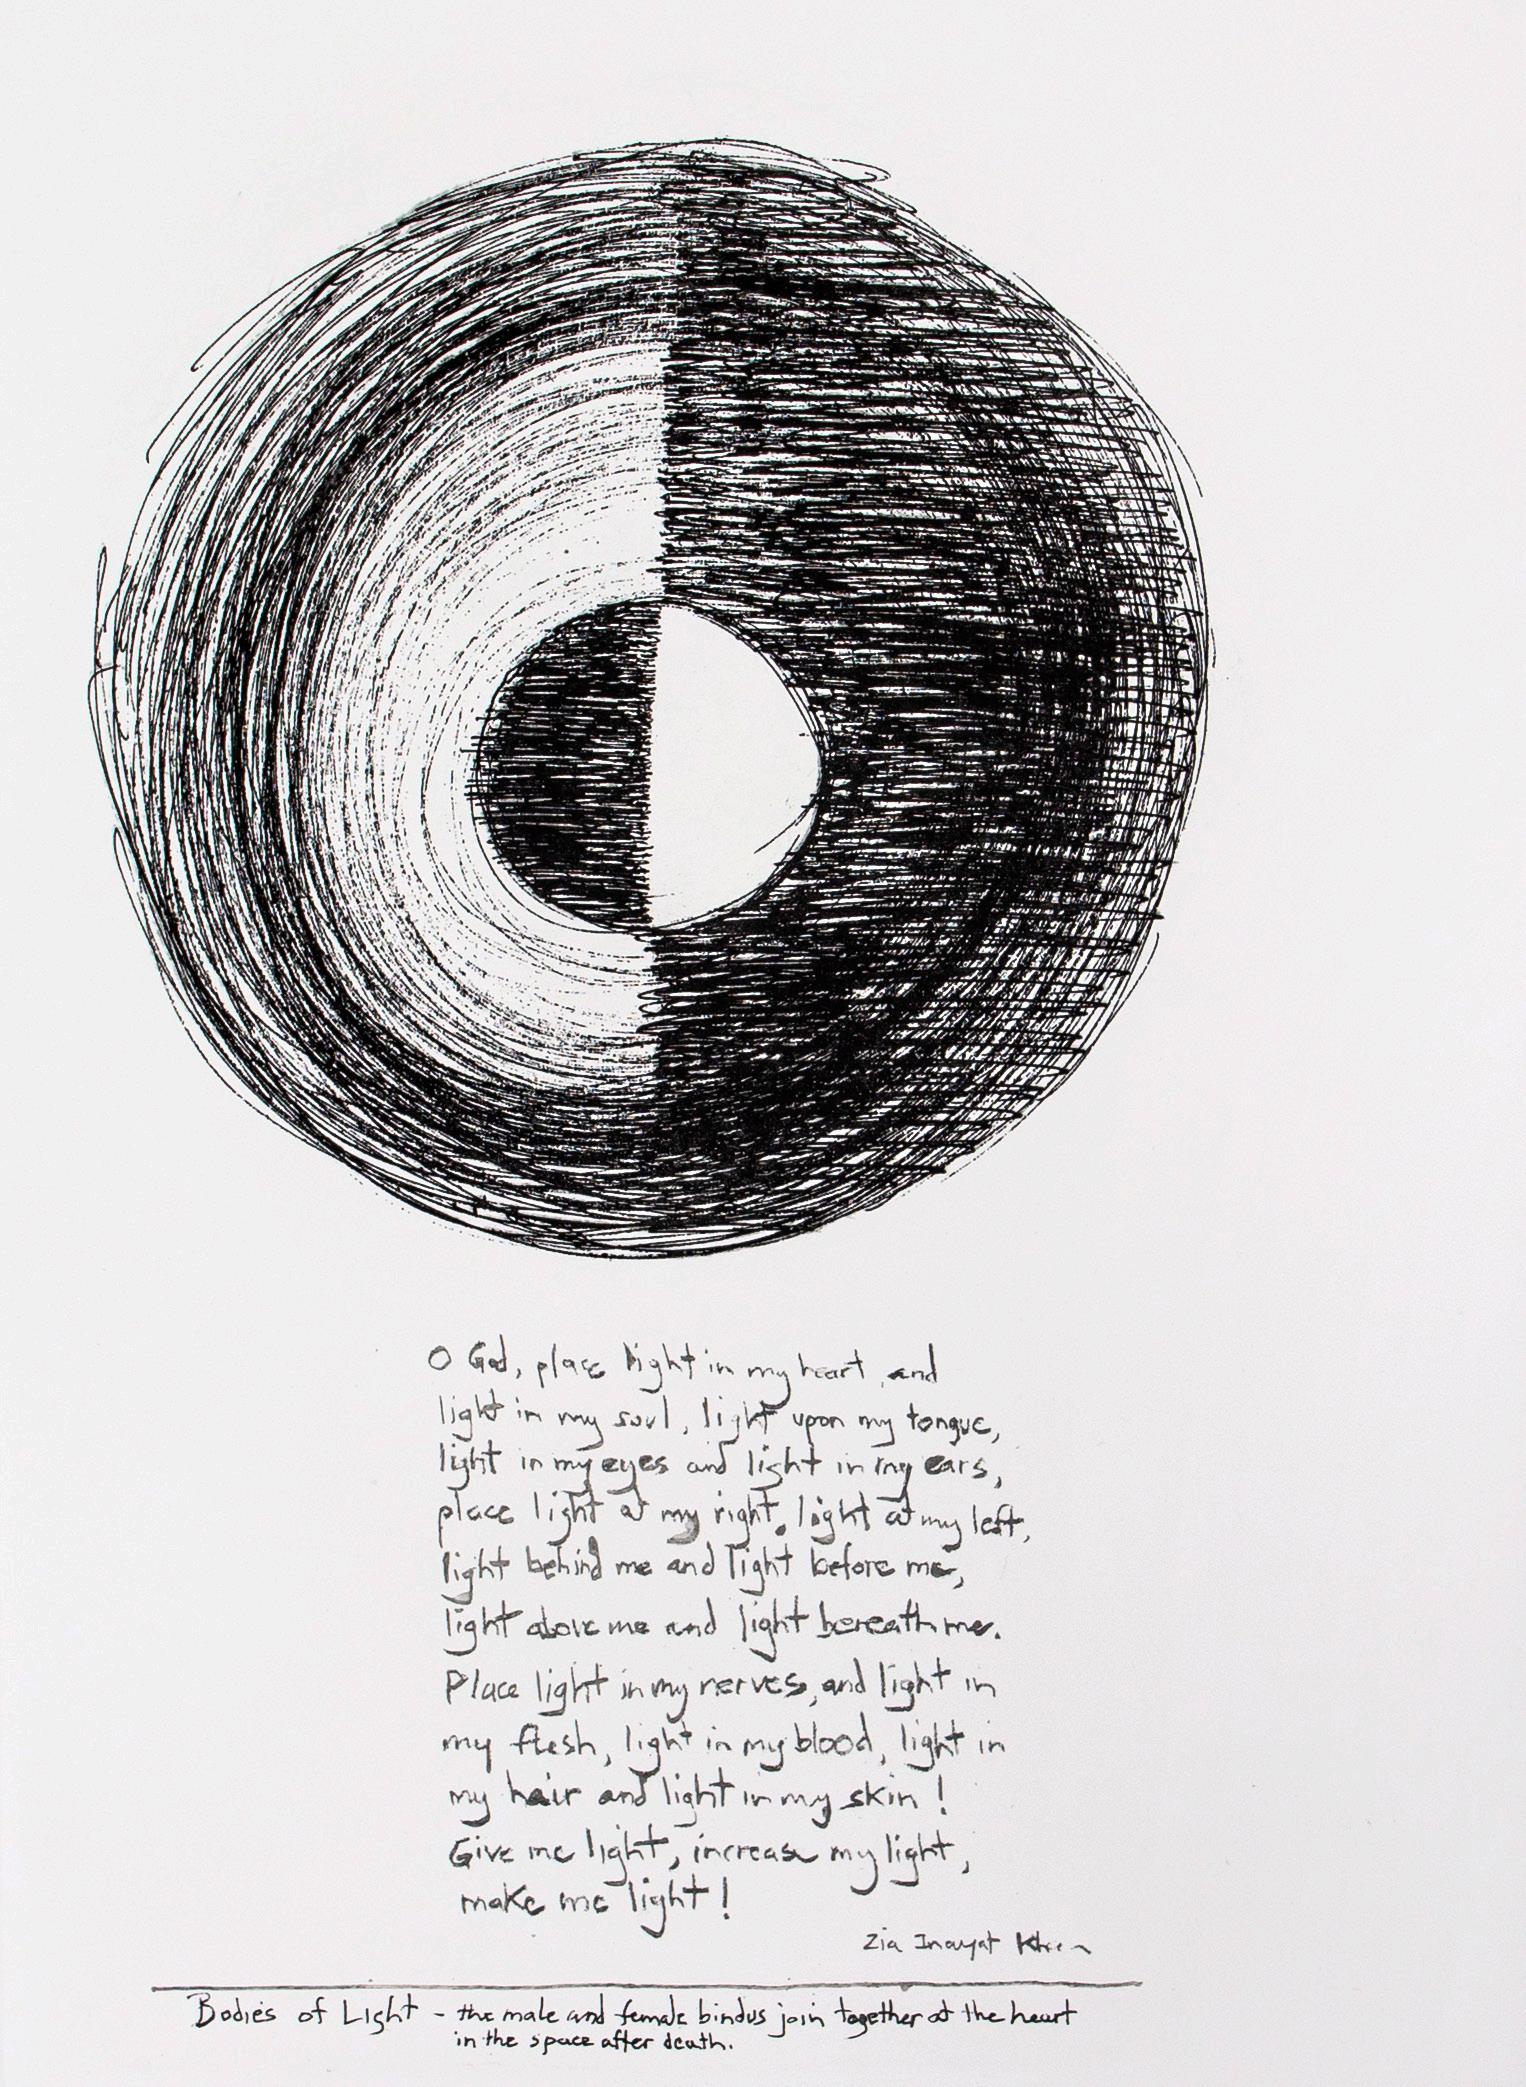 O God, place light in my heart, and
light in my soul, light upon my tongue,
light in my eyes and light in my ears,
place light at my right, light at my left,
light behind me and light before me,
light above me and light beneath me.
Place light in my nerves, and light in
my flesh, light in my blood, light in
my hair and light in my skin!
Give me light, increase my light,
make me light!
Zia Inayat Khan
Bodies of Light - the male and female bindus join together at the heart
in the space after death.